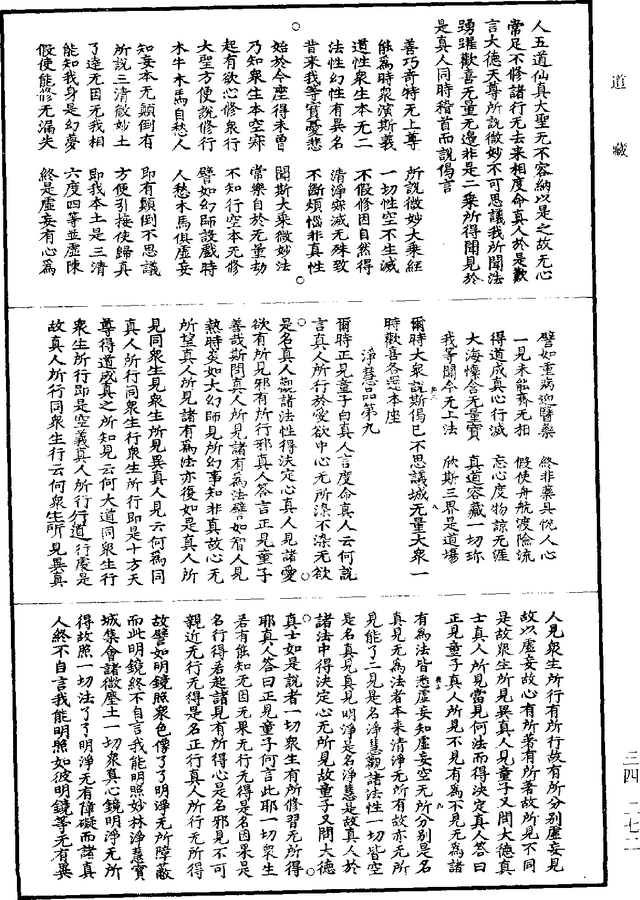 道藏
人五道仙真大聖无不容納以是之故无心
常足不修諸行无去来相度命真人於是歎
言大德天尊所說微妙不可思議我所聞法
踴躍歡喜无量无邊非是二乘所得聞見於
是真人同時稽首而說偈言
善巧奇特无上尊 所說微妙大乘經
能為時衆演斯義 一切性空不生滅
道性衆生本无二 不假修因自然得
法性幻性有異名 清淨寂滅无殊致
昔来我等實憂悲 不斷煩惱非真性
始於今座得未曾 聞斯大乘微妙法
乃知衆生本空寂 常樂自於无量劫
起有欲心修衆行 不知行空本无修
大聖方便說修行 譬如幻師設戲時
木牛木馬自愁人 人愁木馬俱虛妄
知妄本无顛倒有 即有顛倒不思議
所說三清微妙土 方便引接使歸真
了達无因无我相 即我本土是三清
能知我身是幻夢 六度四等並虛陳
假使能修无漏失 終是虛妄有心為
譬如重病迎醫藥 終非藥具悅人心
一見未能齊无相 假使舟航渡險流
得道成真心行滅 忘心度物諒无涯
大海懍含无量寶 真道容藏一切珎
我等聞今无上法 欣斯三界是道場
爾時大衆說斯偈已不思議城无量大衆一
時歡喜各還本座
淨慧品第九
爾時正見童子白真人言度命真人云何說
言真人所行於愛欲中心无所染不染无欲
是名真人觀諸法性得決定心真人見諸愛
欲有所見邪有所行邪真人答言正見童子
善哉斯問真人所見諸有為法譬如智人見
熱時炎如大幻師見所幻事知非真故心无
所望真人所見諸有為法亦復如是真人所
見同衆生見衆生所見異真人見云何為同
真人所行同衆生行衆生所行即是十方天
尊得道成真之所知見云何大道同衆生行
衆生所行即是空義真人所行行道行處是
故真人所行同衆生行云何衆生所見異真
人見衆生所行有所行故有所分別虛妄見
故以虛妄故心有所著有所著故所見不同
是故衆生所見異真人見童子又問大德真
士真人所見當見何法而得決定真人答曰
正見童子真人所見不見有為不見无為諸
有為法皆悉虛妄知虛妄空无所分別是名
真見无為法者本来清淨无所有故亦无所
見能了二見是名淨慧觀諸法性一切皆空
是名真見真見明淨是名淨慧是故真人於
諸法中得決定心无所見故童子又問大德
真士如是說者一切衆生有所修習无所得
耶真人答曰正見童子何言此耶一切衆生
若有能知无因无果无行无得是名因果是
名行得若起諸見有所得心是名邪見不可
親近无行无得是名正行真人所行无所得
故譬如明鏡照衆色像了了明淨无所障蔽
而此明鏡終不自言我能明照妙林淨慧寶
城集會諸微塵土一切衆真心鏡明淨无所
得故照一切法了了明淨无有障礙而諸真
人終不自言我能明照如彼明鏡等无有異
三四 二七二